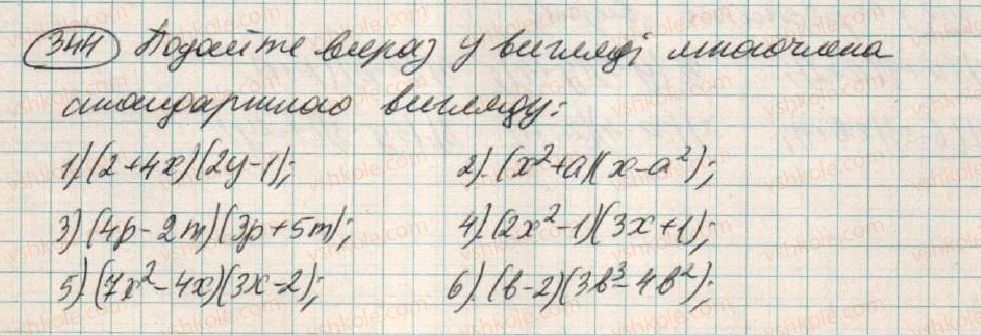 344 Подайте вираз у вигляді многочлена
стандартного вигляду:
1) (2+4x)(2y-1); 2). (x²+a)(x-a²);
3) (4p-2m)(3p+5m); 4). (2x²-1)(3x+1);
5). (7x²-4x)(3x-2); 6). (b-2)(3b³-4b²);